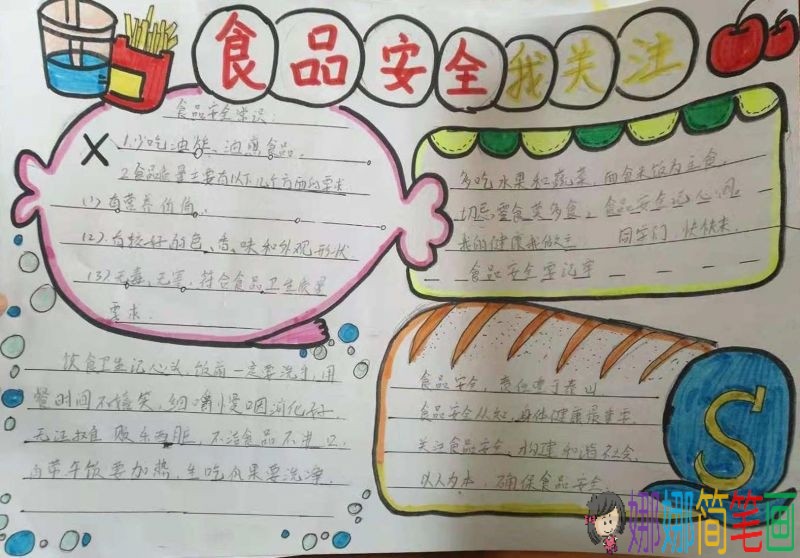 食品安全我关注
食品安全常识:
1.少吃油炸、油腻食品。
2.食品质量主要有以下几个方面的要求
(1)有营养价值、
(2).有较好的色、香、味和外观形状
(3)无毒、无害,符合食品卫生质量
要求.
多吃水果和蔬菜,面食米饭为主食.
切忌零食莫多食,食品安全记心间
我的健康我做主 同学们,快快来
食品安全牢记牢
饮食卫生记心头,饭前一定要洗手,用
餐时间不嬉笑,细嚼慢咽消化好,
无证摊贩
自带午饭要加热,生吃瓜果要洗净.
食品安全,责任重于泰山
食品安全认知,身体健康最重要.
关注食品安全,构建和谐社会.
以人为本,确保食品安全.
S
娜娜简笔画